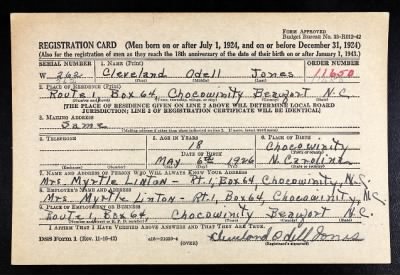 FORM APPROVED
Budget Bureau No. 33-R012-42
REGISTRATION CARD (Men born on or after July 1, 1924, and on or before December 31, 1924)
(Also for the registration of men as they reach the 18th anniversary of the date of their birth on or after January 1, 1943.)
SERIAL NUMBER 1. NAME (Print) ORDER NUMBER
W 262 Cleveland Odell Jones 11650
(First) (Middle) (Last)
2. PLACE OF RESIDENCE (Print)
Route 1, Box 64, Chocowinity Beaufort N.C.
(Number and street) (Town, township, village, or city) (County) (State)
[THE PLACE OF RESIDENCE GIVEN ON LINE 2 ABOVE WILL DETERMINE LOCAL BOARD
JURISDICTION; LINE 2 OF REGISTRATION CERTIFICATE WILL BE IDENTICAL]
3. MAILING ADDRESS
Same
(Mailing address if other than place indicated on line 2. If same, insert word same)
4. TELEPHONE 5. AGE IN YEARS 6. PLACE OF BIRTH
18 Chocowinity
DATE OF BIRTH (Town or county)
May 6th 1926 N. Carolina
(Exchange) (Number) (Mo.) (Day) (Yr.) (State or country)
7. NAME AND ADDRESS OF PERSON WHO WILL ALWAYS KNOW YOUR ADDRESS
Mrs. Myrtle Linton - Rt. 1, Box 64, Chocowinity, N.C.
8. EMPLOYER'S NAME AND ADDRESS
Mrs. Myrtle Linton - Rt. 1, Box 64, Chocowinity, N.C.
9. PLACE OF EMPLOYMENT OR BUSINESS
Route 1, Box 64, Chocowinity Beaufort N.C.
(Number and street or R. F. D. number) (Town) (County) (State)
I AFFIRM THAT I HAVE VERIFIED ABOVE ANSWERS AND THAT THEY ARE TRUE.
DSS Form 1 (Rev. 11-16-42) (OVER) Cleveland Odell Jones
(Registrant's signature)